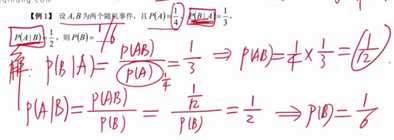 【例 1】 设 A, B 为两个随机事件，且 P(A)=1/4, P(B|A)=1/3,
P(A|B)=1/2, 则 P(B)= 1/6
解: P(B|A) = P(AB)/P(A) 1/4 = 1/3 ⇒ P(AB)=1/4×1/3=1/12
P(A|B)= P(AB)/P(B) = 1/12/P(B) = 1/2 ⇒ P(B)=1/6